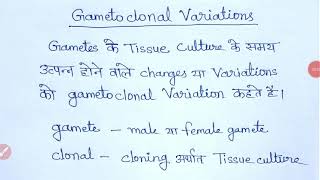 Gametoclonal Variations
Gametes के Tissue Culture के समय
उत्पन्न होने वाले changes या Variations
को gametoclonal Variation कहते हैं।
gamete – male या female gamete
clonal – cloning अर्थात Tissue culture